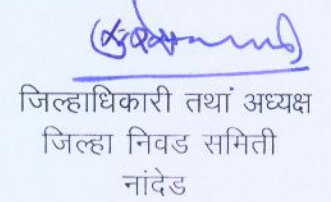 जिल्हाधिकारी तथां अध्यक्ष
जिल्हा निवड समिती
नांदेड